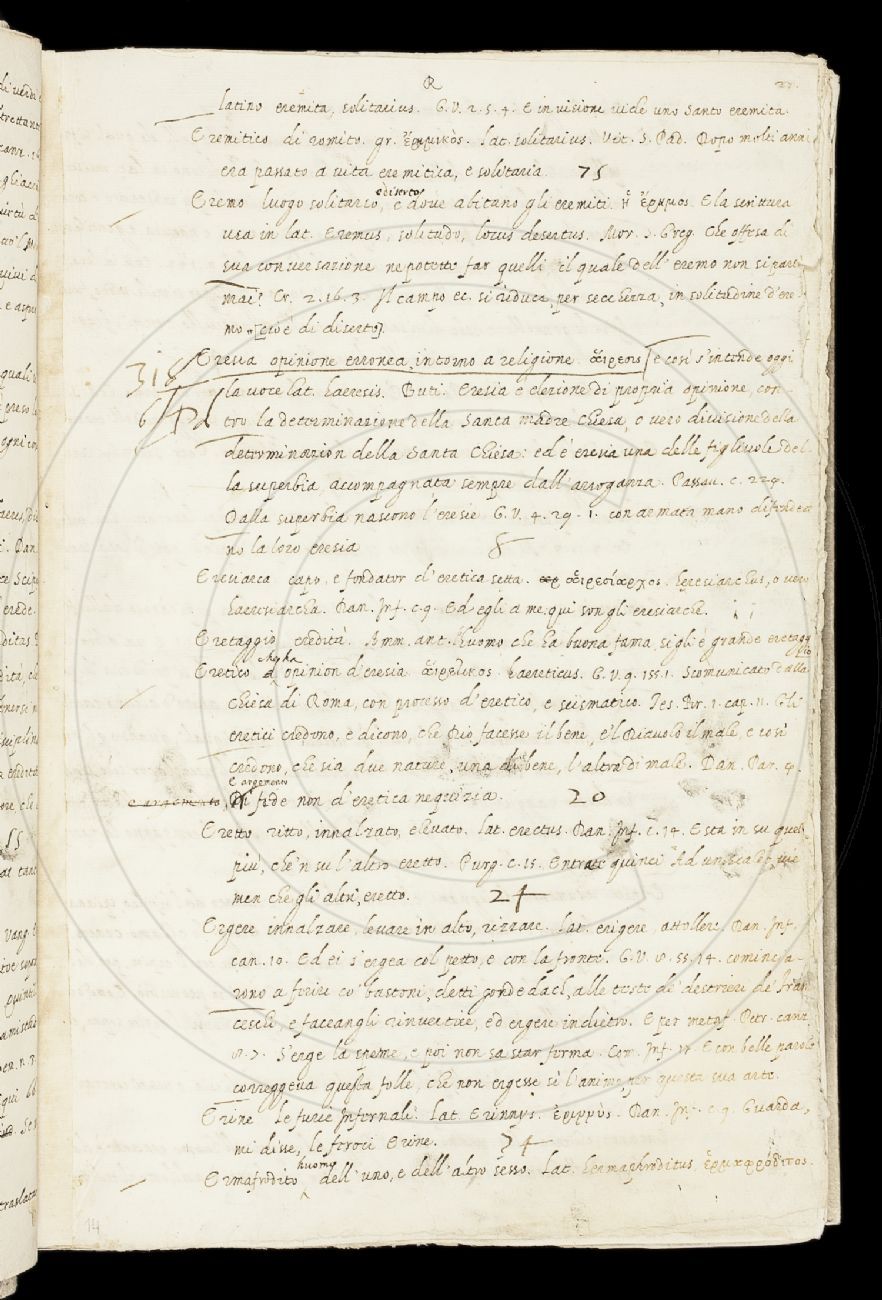 R
latino eremita, solitarius. G.V. 2. 5. 4. E in visione vide uno santo eremita.
Eremitico di romito. gr. ἐρημικὸς. lat. solitarius. Vit. S. Pad. Dopo molti anni
era passato a vita eremitica, e solitaria. 75
Eremo luogo solitario, e diserto, e dove abitano gli eremiti. ἡ ἔρημος. E la scrittura
usa in lat. Eremus, solitudo, locus desertus. Mor. S. Greg. Che offesa di
sua conversazione ne potette far quelli, il quale dell'eremo non si parti
mai? Cr. 2. 16. 3. Il campo ec. si riduca, per secchezza, in solitudine d'ere
mo [cioè di diserto].
318 Eresia opinione erronea intorno a religione. αἵρεσις e così s'intende oggi
6 la voce lat. haeresis. Buti. Eresia è elezione di propria opinione, con
tro la determinazione della santa madre Chiesa, o vero divisione della
determinazion della santa Chiesa: ed è eresia una delle figliuole del
la superbia, accompagnata sempre dall'arroganza. Passav. c. 229.
Dalla superbia nascono l'eresie. G.V. 4. 29. 1. con armata mano difendea
no la loro eresia 8
Eresiarca capo, e fondator d'eretica setta. αἱρεσίαρχος. heresiarchus, o vero
haeresiarcha. Dan. Inf. c. 9. Ed egli a me, qui son gli eresiarche.
Eretaggio eredità. Amm. ant. huomo che ha buona fama, sigli è grande eretaggio
Eretico d' opinion d'eresia. αἱρετικος. haereticus. G.V. 9. 155. 1. Scomunicato dalla
chiesa di Roma, con processo d'eretico, e scismatico. Tes. Br. 1. cap. 11. Gli
eretici credono, e dicono, che Dio facesse il bene, e'l Diavolo il male, e così
credono, che sia due nature, una di bene, l'altra di male. Dan. Par. 4.
E argomento
e argomento, Di fede non d'eretica nequizia. 20
Eretto ritto, innalzato, elevato. lat. erectus. Dan. Inf. c. 14. E sta in su quel
piu, che'n su l'altro eretto. Purg. c. 15. Entrate quinci Ad un scaleo vie
men che gli altri, eretto. 24
Ergere innalzare, levare in alto, rizzare. Lat. erigere, attollere. Dan. Inf.
can. 10. Ed ei s'ergea col petto, e con la fronte. G.V. 8. 55. 14. comincia-
rono a ferire co' bastoni, detti godedac, alle teste de' destrieri de' Fran
ceschi, e faceangli rinvertire, ed ergere indietro. E per metaf. Petr. canz.
8. 7. S'erge la speme, e poi non sa star ferma. Com. Inf. 17. E con belle parole
correggeva questa folle, che non ergesse sì l'animo per questa sua arte.
Erine le furie Infernali. lat. Erinnys. ἐριννύς. Dan. Inf. c. 9. Guarda,
mi disse, le feroci Erine. 34
Ermafrodito huomo dell'uno, e dell'altro sesso. Lat. hermaphroditus ἑρμαφρόδιτος.
14